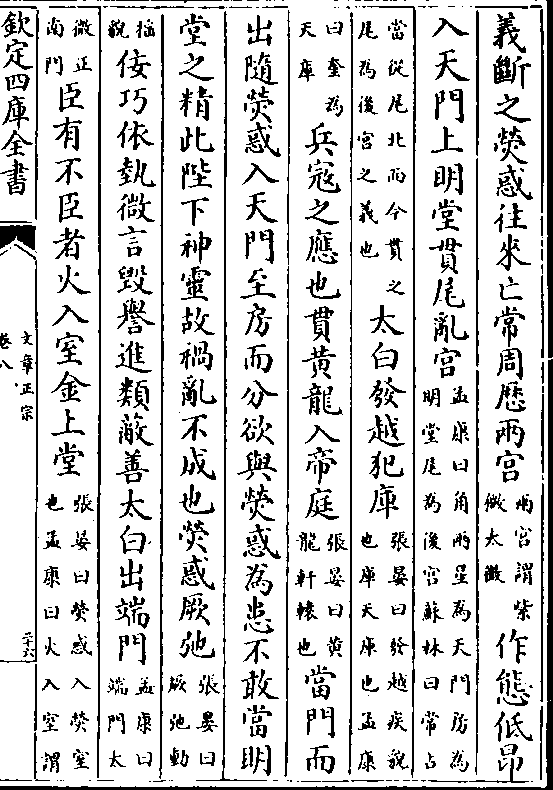 義斷之熒惑往來亡常周歷兩宮兩宮謂紫微太微作態低昂
入天門上明堂貫尾亂宮孟康曰角兩星為天門房為明堂尾為後宮蘇林曰常占
當從尾北而今貫之尾為後宮之義也太白發越犯庫張晏曰發越疾貌也庫天庫也孟康
曰奎為天庫兵寇之應也貫黃龍入帝庭張晏曰黃龍軒轅也當門而
出隨熒惑入天門至房而分欲與熒惑為患不敢當明
堂之精此陛下神靈故禍亂不成也熒惑厥弛張晏曰厥弛動
搖貌佞巧依執微言毀譽進類蔽善太白出端門孟康曰端門太
微正南門臣有不臣者火入室金上堂張晏曰熒惑入熒室也孟康曰火入室謂
欽定四庫全書
文章正宗
卷八
二十六